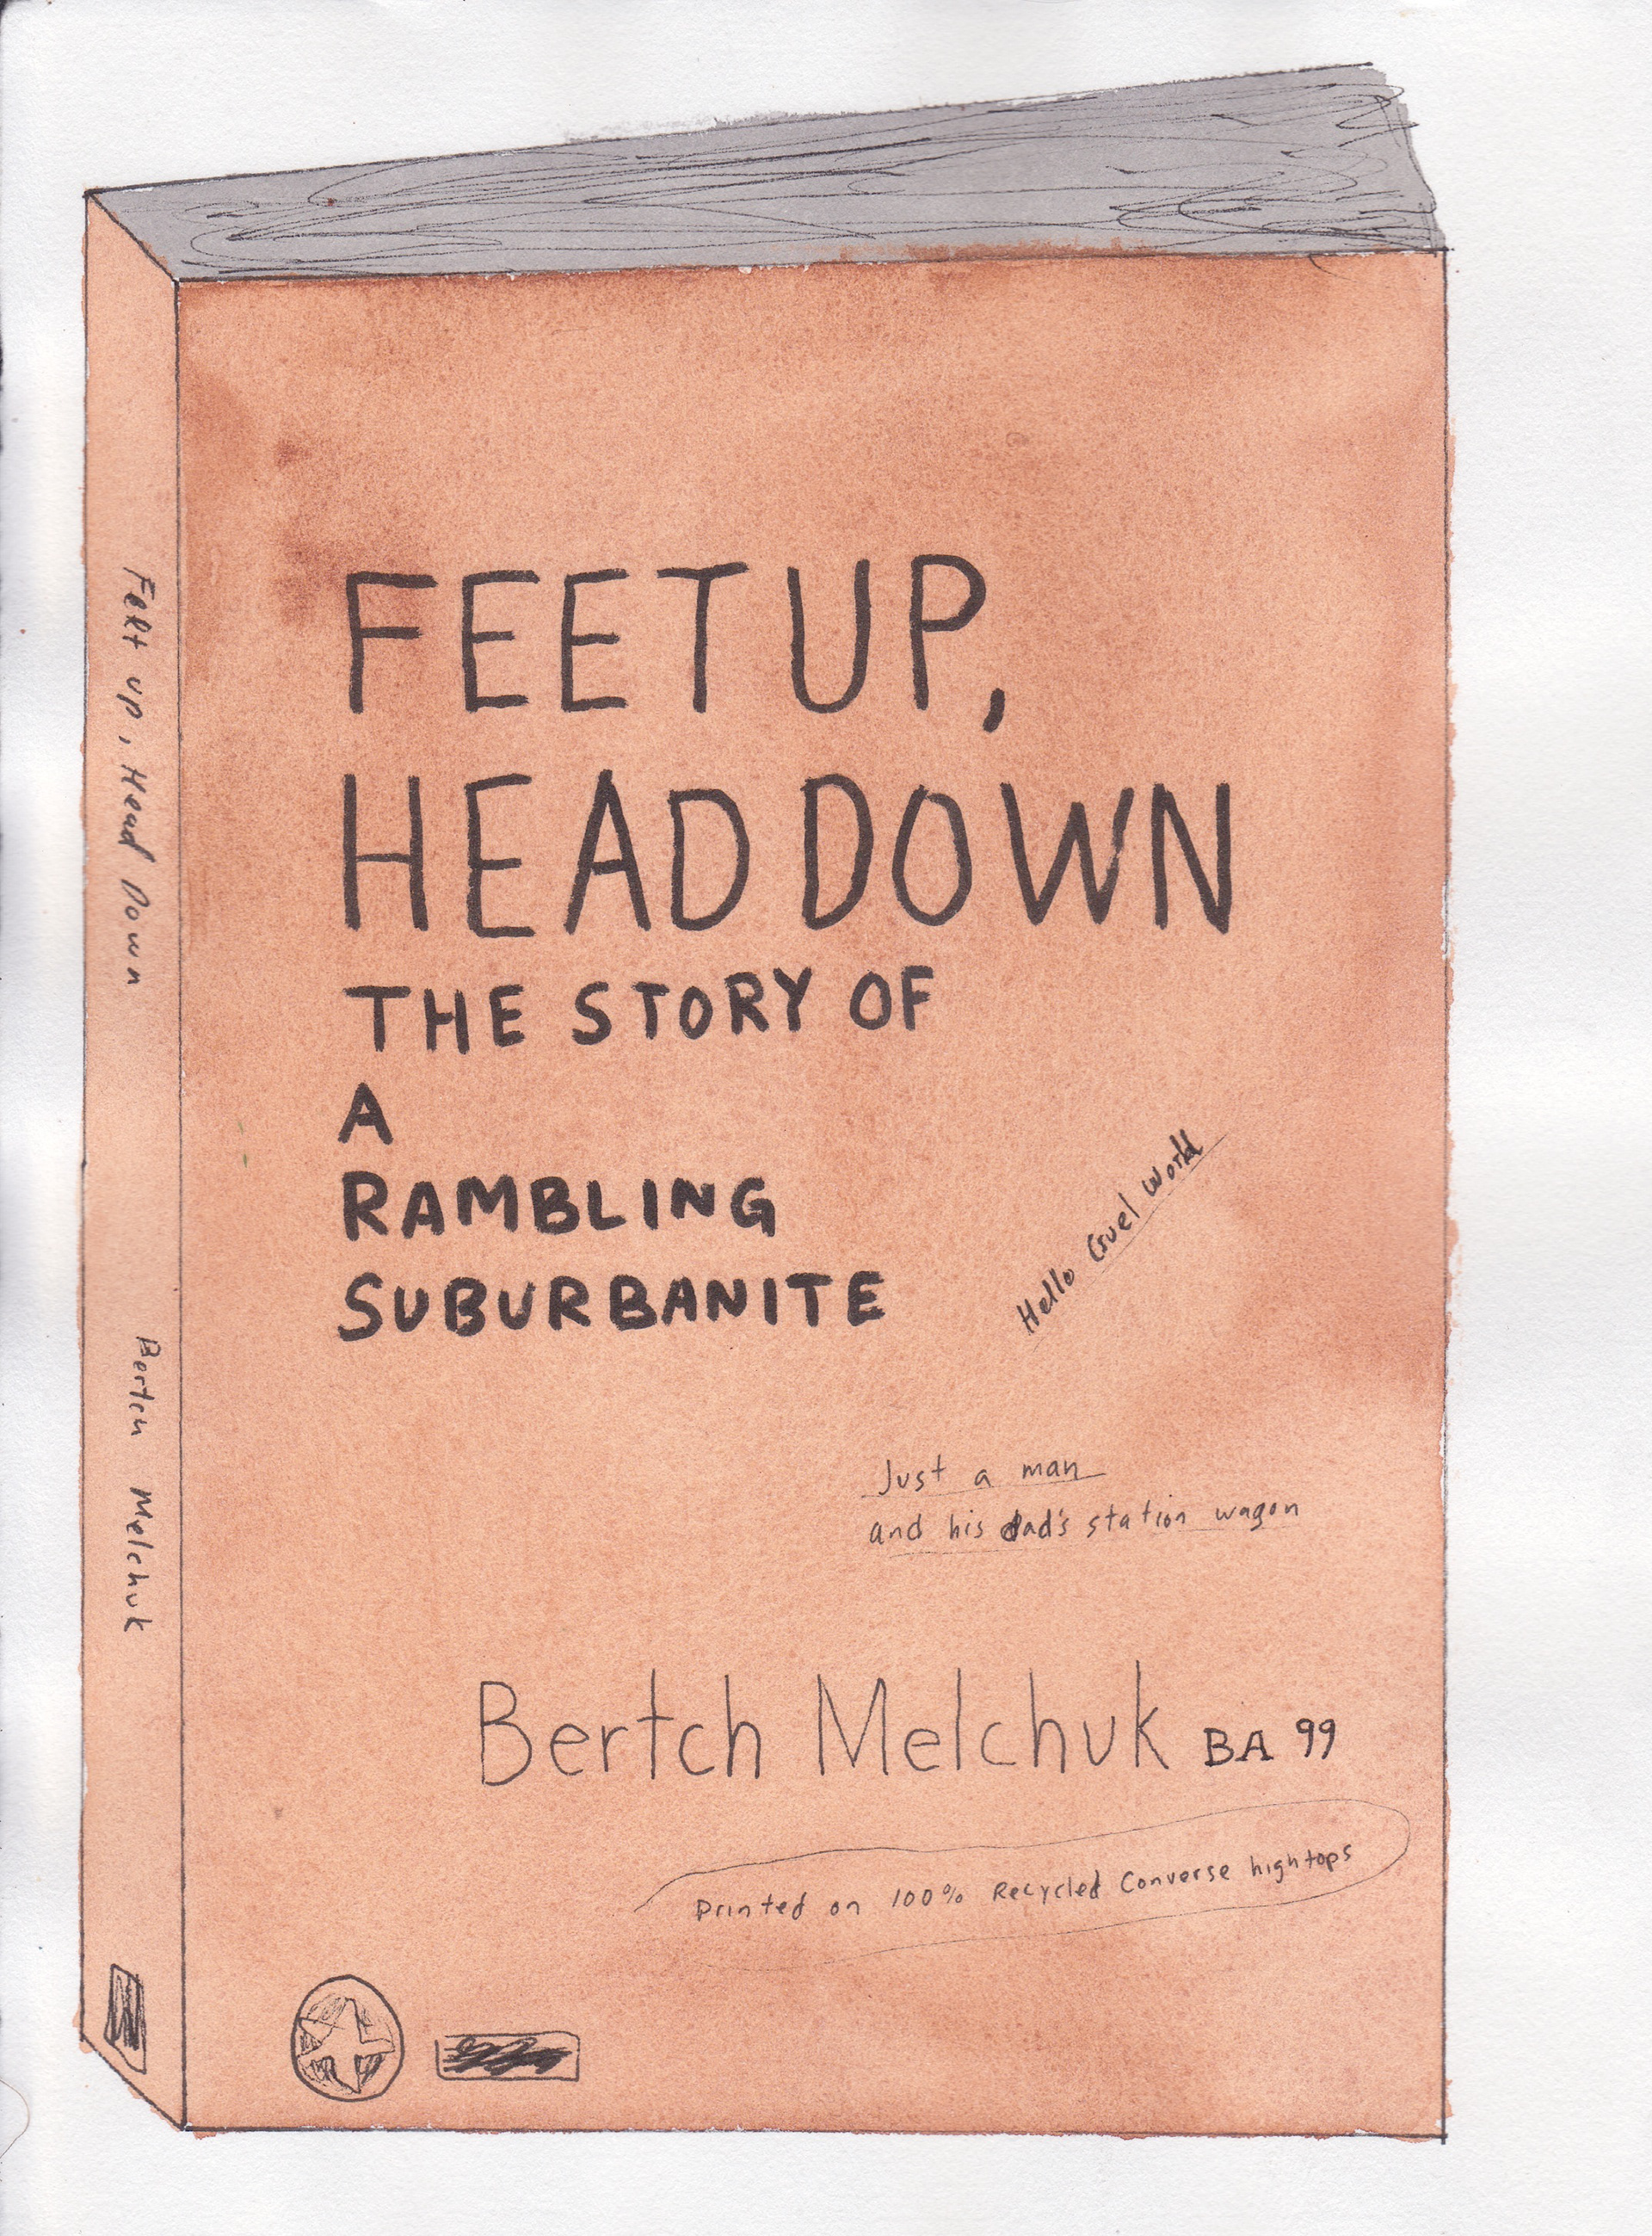 FEET UP,
HEAD DOWN
THE STORY OF
A
RAMBLING
SUBURBANITE
Hello Cruel World
Just a man
and his dad's station wagon
Bertch Melchuk BA 99
Printed on 100% Recycled Converse hightops
up, Head Down
Bertch Melchuk